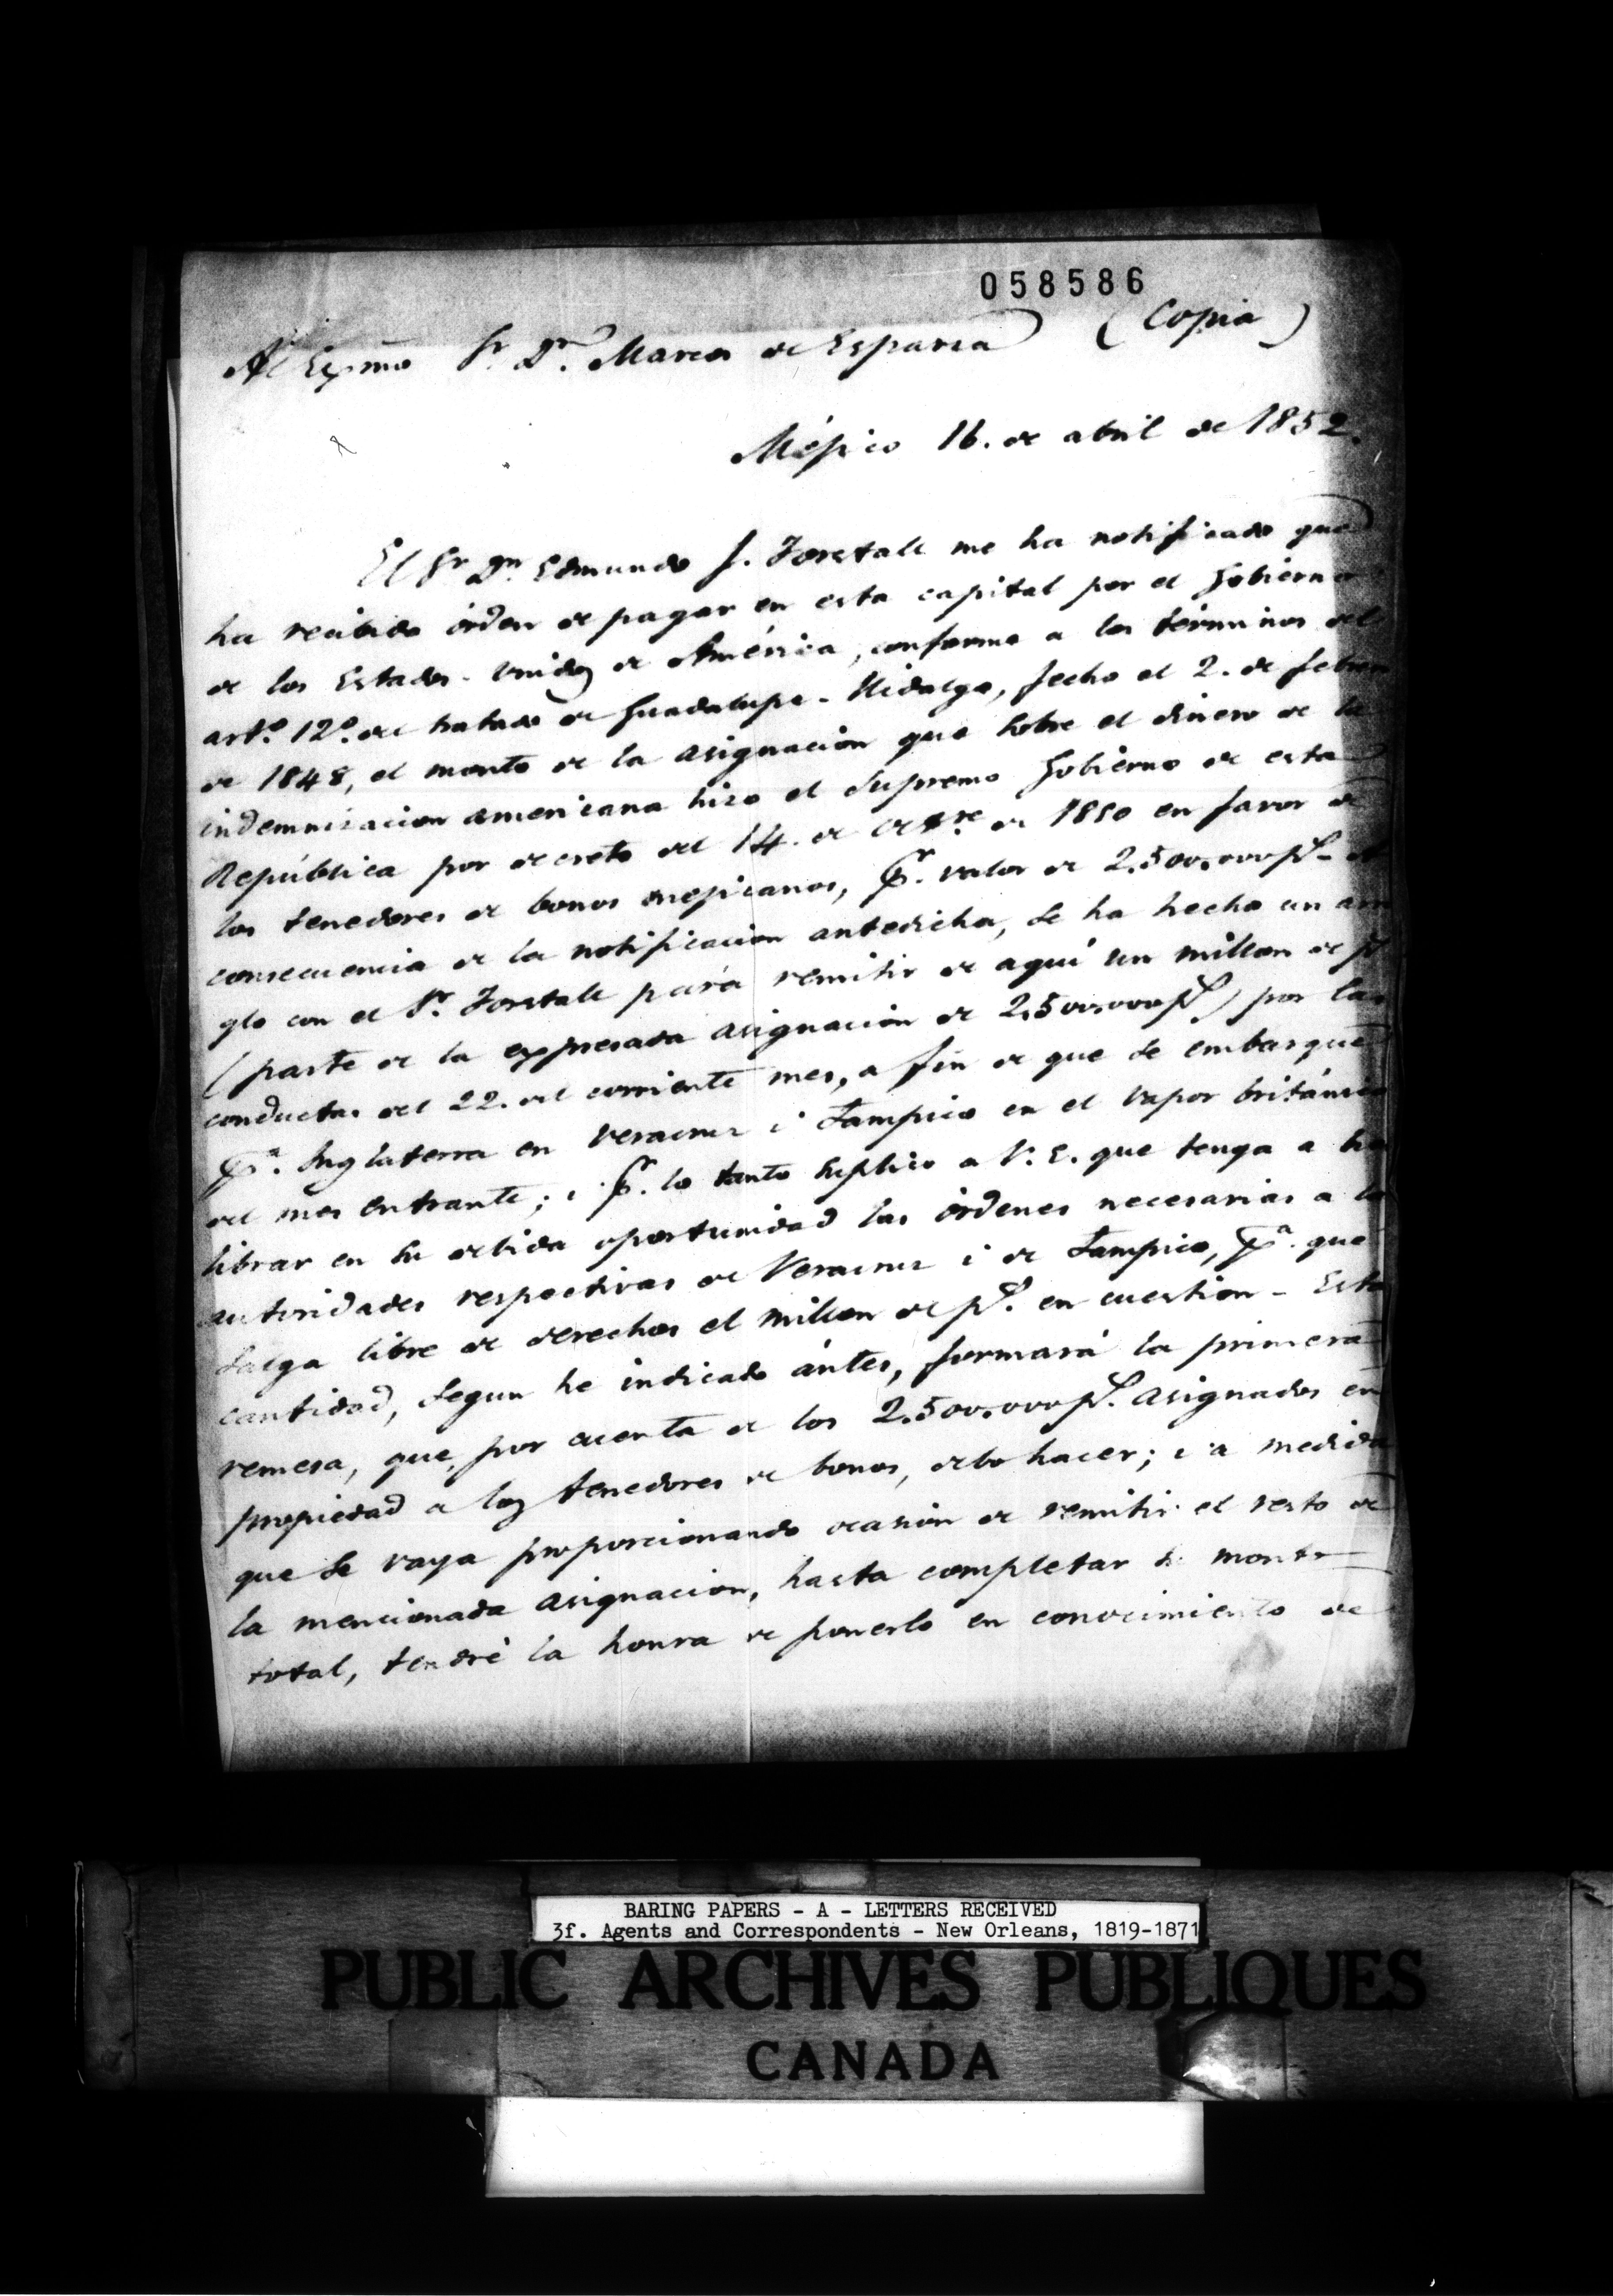 058586
(Copia)
Al Exmo Sr. Dn. Marcos de Esparza
Méjico 16. de abril de 1852.
El Sr Dn. Edmundo J. Forstall me ha notificado que
ha recibido órden de pagar en esta capital por el Gobierno
de los Estados-Unidos de América, conforme a los términos del
artº. 12º. del tratado de Guadalupe-Hidalgo, fecho el 2. de febrero
de 1848, el monto de la asignacion que sobre el dinero de la
indemnizacion americana hizo el Supremo Gobierno de esta
República por decreto del 14. de octre de 1850 en favor de
los tenedores de bonos mejicanos, pr. valor de 2.500.000 ps. -
consecuencia de la notificacion antedicha, se ha hecho un arre
glo con el Sr. Forstall para remitir de aquí un millon de ps
(parte de la expresada asignacion de 2.500.000 ps) por las
conductas del 22. del corriente mes, a fin de que se embarque
pa. Inglaterra en Veracruz i Tampico en el vapor británico
del mes entrante; i pr. lo tanto suplico a V. E. que tenga a
librar en su debida oportunidad las órdenes necesarias a las
autoridades respectivas de Veracruz i de Tampico, pa. que
salga libre de derechos el millon de ps. en cuestion - Esta
cantidad, segun he indicado ántes, formará la primera
remesa, que, por cuenta de los 2.500.000 ps. asignados en
propiedad a los tenedores de bonos, debo hacer; i a medida
que se vaya proporcionando ocasion de remitir el resto de
la mencionada asignacion, hasta completar su monto
total, tendré la honra de ponerlo en conocimiento de
BARING PAPERS - A - LETTERS RECEIVED
3f. Agents and Correspondents - New Orleans, 1819-1871
PUBLIC ARCHIVES PUBLIQUES
CANADA